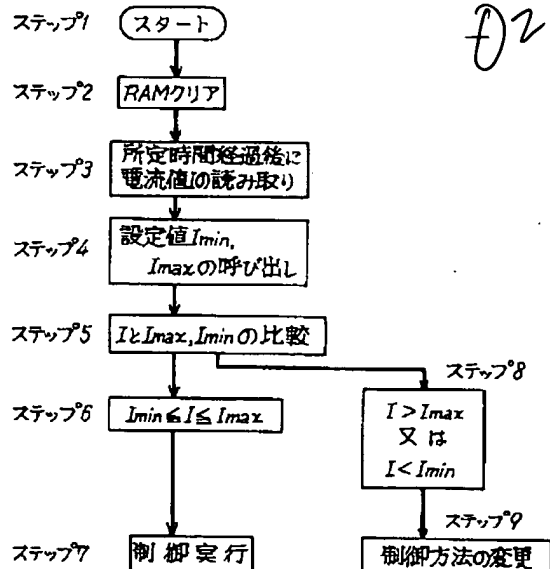 ステップ1
スタート
ステップ2
RAMクリア
ステップ3
所定時間経過後に
電流値Iの読み取り
ステップ4
設定値Imin,
Imaxの呼び出し
ステップ5
IとImax,Iminの比較
ステップ6
Imin≦I≦Imax
ステップ7
制御実行
ステップ8
I>Imax
又は
I<Imin
ステップ9
制御方法の変更